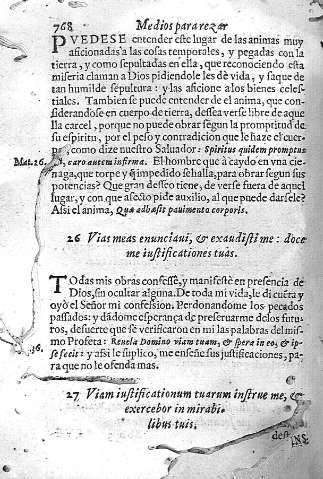 768 Medios para rezar
PVEDESE entender este lugar de las animas muy
aficionadas a las cosas temporales, y pegadas con la
tierra, y como sepultadas en ella, que reconociendo esta
miseria claman a Dios pidiendole les dè vida, y saque de
tan humilde sepultura: y las aficione a los bienes celes-
tiales. Tambien se puede entender del anima, que con-
siderandose en cuerpo de tierra, dessea verse libre de aque
lla carcel, porque no puede obrar segun la promptitud de
su espiritu, por el peso y contradicion que le haze el cuer
como dize nuestro Saluador: Spiritus quidem promptus
Mat. 26. caro autem infirma. El hombre que à caydo en vna cie-
naga, que torpe y q̃ impedido se halla, para obrar segun sus
potencias? Que gran desseo tiene, de verse fuera de aquel
lugar, y con que afecto pide auxilio, al que puede darsele?
Assi el anima, Quæ adhæsit pauimento corporis.
26 Vias meas enunciaui, & exaudisti me: doce
me iustificationes tuas.
TOdas mis obras confessè, y manifestè en presencia de
Dios, sin ocultar alguna. De toda mi vida, le di cuẽta y
oyò el Señor mi confession. Perdonandome los pecados
passados: y dãdome esperança de preseruarme delos futu-
ros, de suerte que se verificaron en mi las palabras del mis-
mo Profeta: Reuela Domino viam tuam, & spera in eo, & ip-
36. se fecit: y assi le suplico, me enseñe sus justificaciones, pa-
ra que no le ofenda mas.
27 Viam iustificationum tuarum instrue me, &
exercebor in mirabi-
libus tuis.